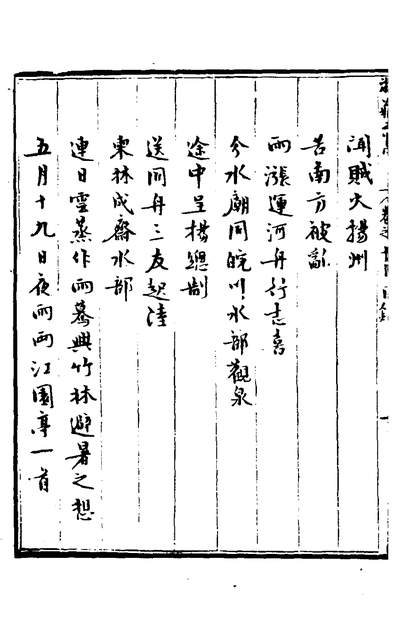 聞賊火揚州
苦南方被亂
雨漲運河舟行志喜
分水廟同皖川水部觀泉
途中呈楊總制
送同舟三友起陸
東林成齋水部
連日雲蒸作雨驀興竹林避暑之想
五月十九日夜雨兩江園亭一首